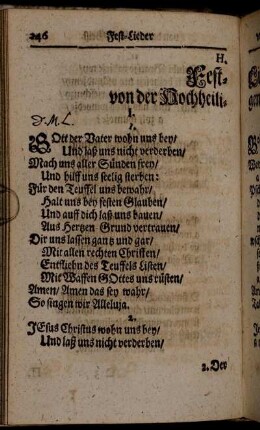 246 Fest-Lieder
H.
Fest-
von der Hochheili-
I.
D. M. L.
1.
GOtt der Vater wohn uns bey/
Und laß uns nicht verderben/
Mach uns aller Sünden frey/
Und hilff uns seelig sterben:
Für den Teuffel uns bewahr/
Halt uns bey festen Glauben/
Und auff dich laß uns bauen/
Aus Hertzen Grund vertrauen/
Dir uns lassen gantz und gar/
Mit allen rechten Christen/
Entfliehn des Teuffels Listen/
Mit Waffen GOttes uns rüsten/
Amen/ Amen das sey wahr/
So singen wir Alleluja.
2.
JEsus Christus wohn uns bey/
Und laß uns nicht verderben/
2. Der